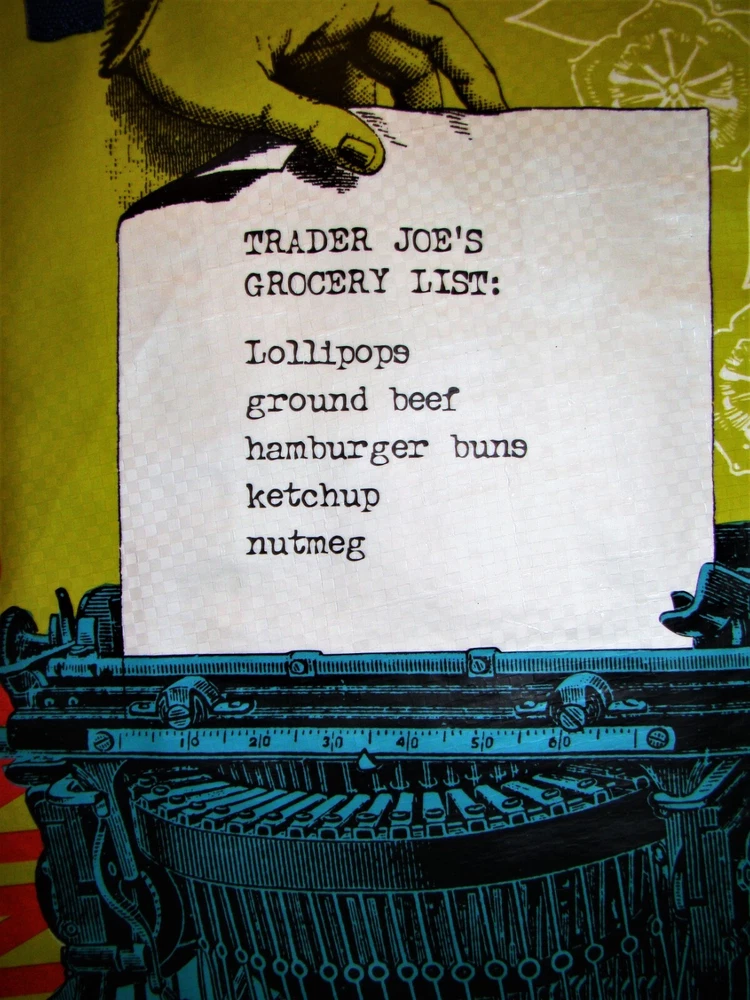 TRADER JOE'S
GROCERY LIST:
Lollipops
ground beef
hamburger buns
ketchup
nutmeg
10 20 30 40 50 60